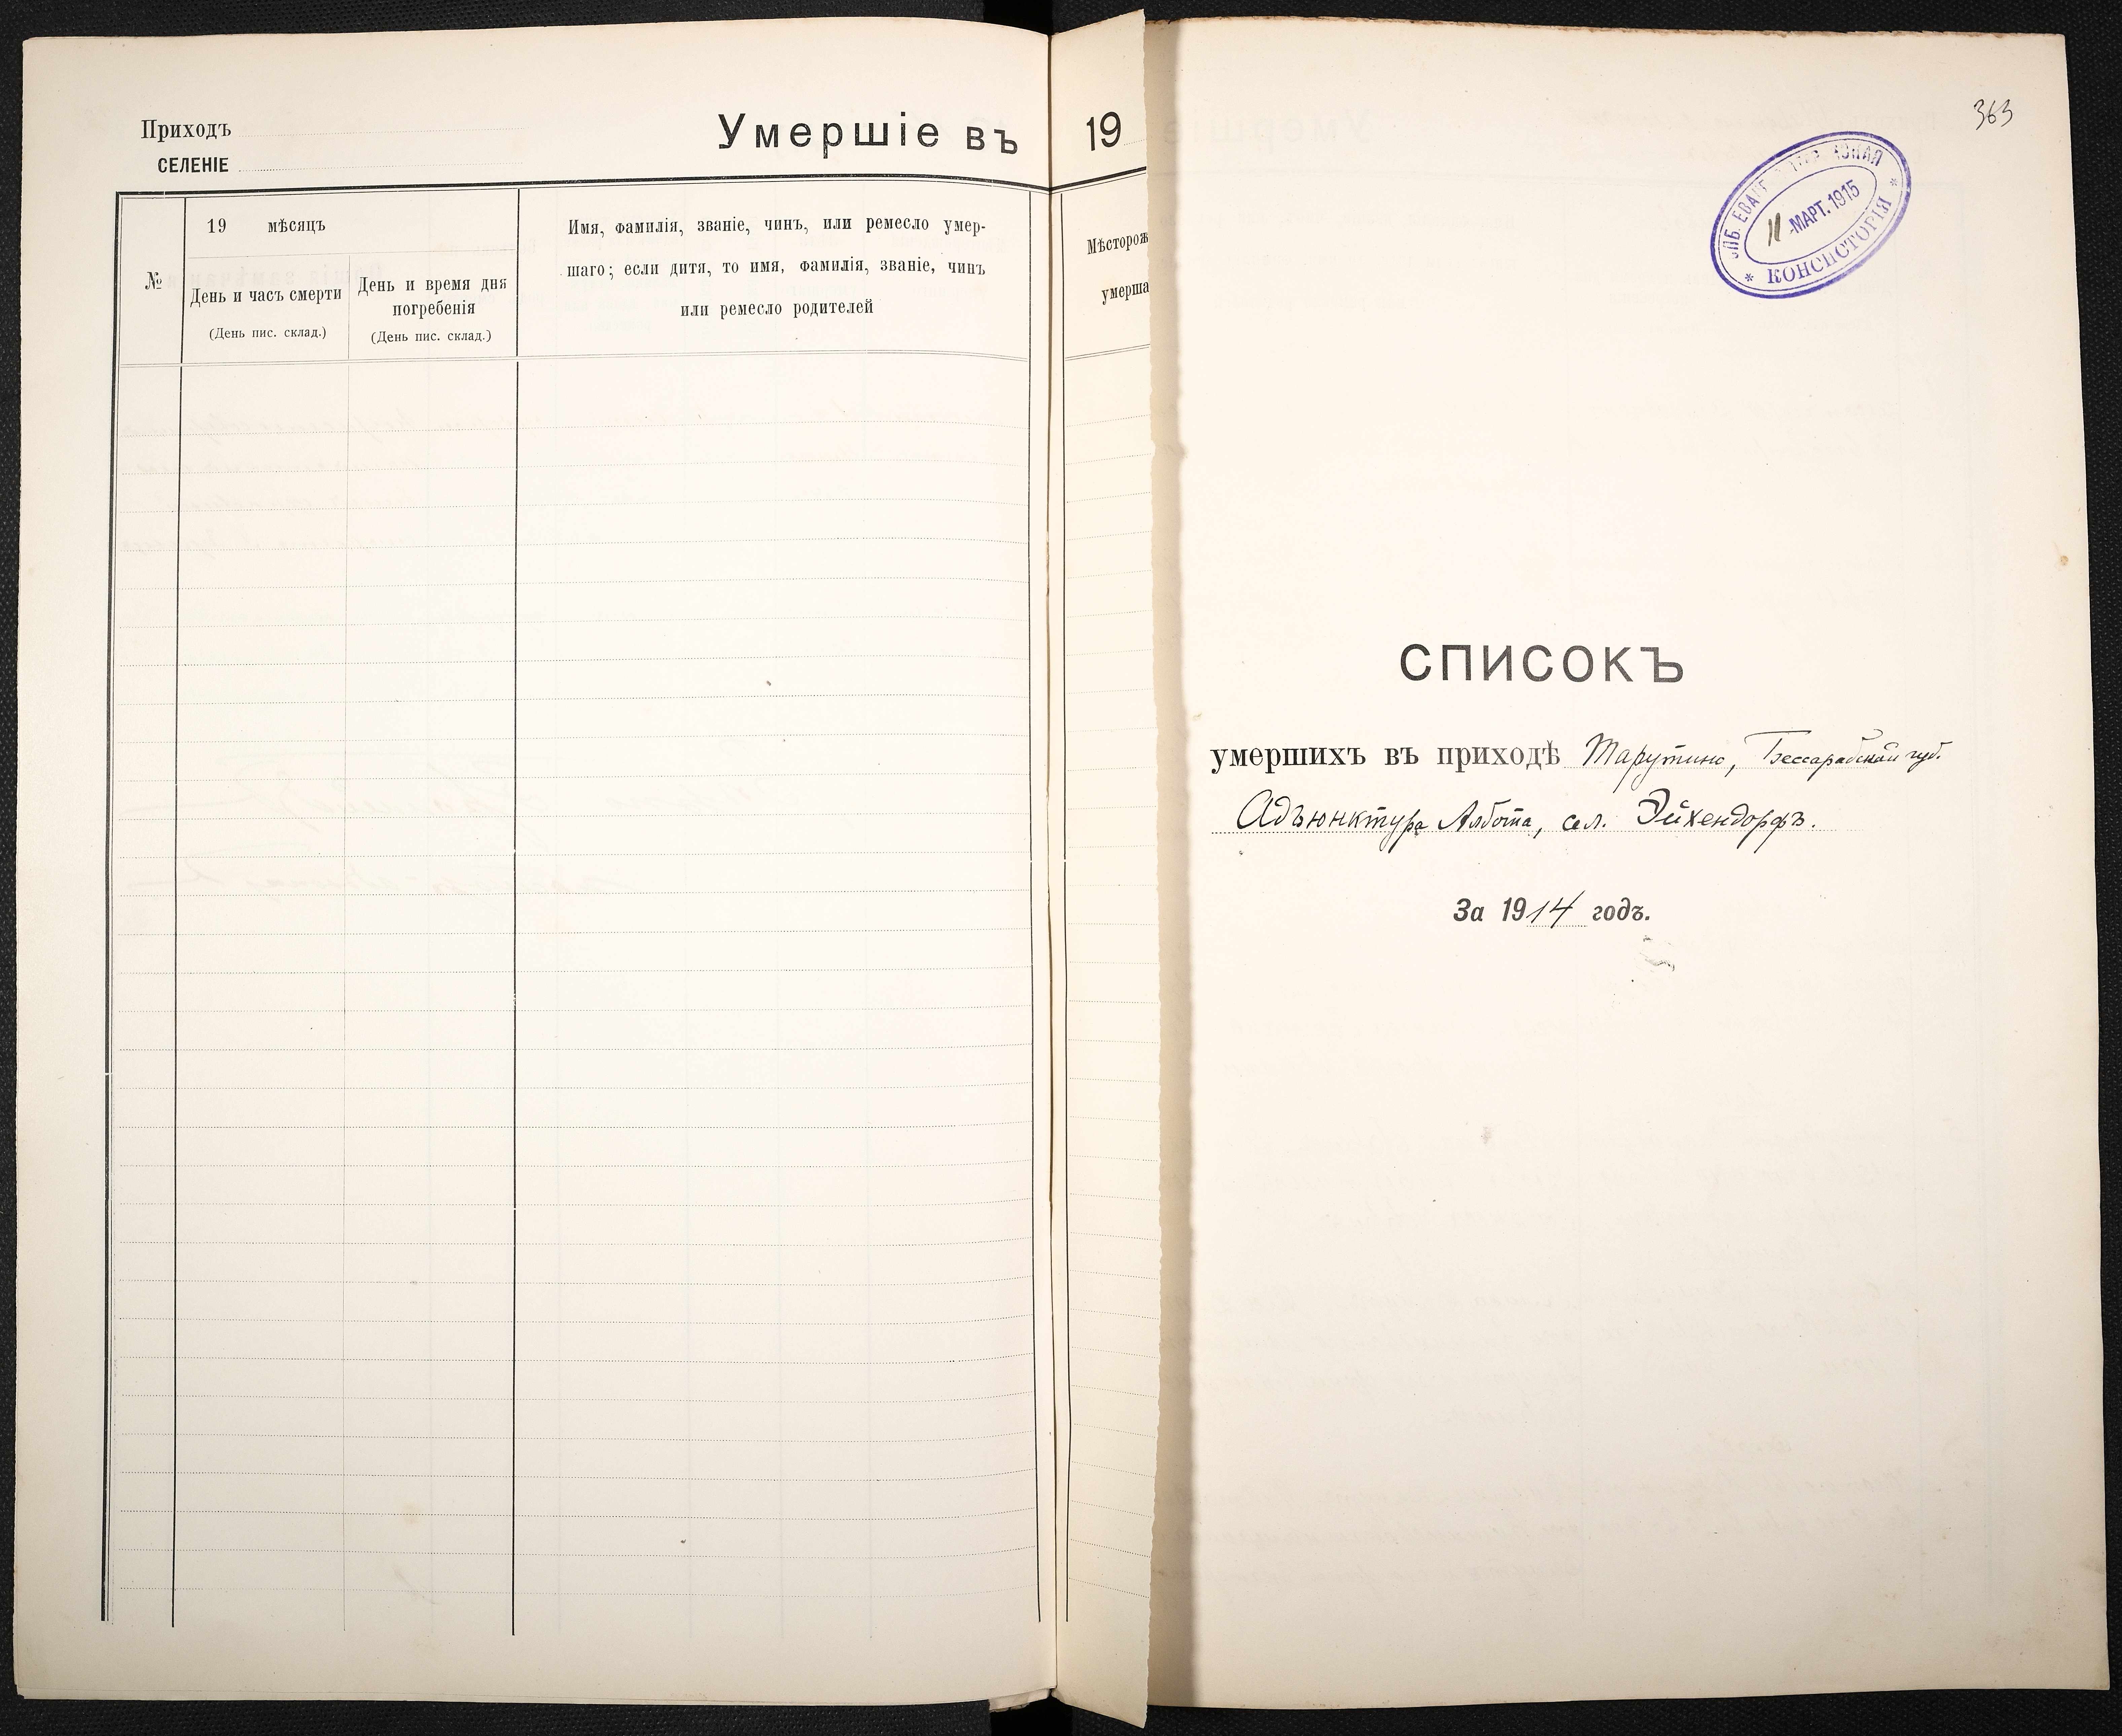 Приходъ
СЕЛЕНІЕ
Умершіе въ 19
№
19 мѣсяцъ
День и часъ смерти
(День пис. склад.)
День и время дня
погребенія
(День пис. склад.)
Имя, фамилія, званіе, чинъ, или ремесло умер-
шаго; если дитя, то имя, фамилія, званіе, чинъ
или ремесло родителей
Мѣсторож
умерша
363
СПБ. ЕВАНГ
11 МАРТ. 1915
* КОНСИСТОРІЯ *
СПИСОКЪ
умершихъ въ приходѣ Тарутино, Бессарабской губ.
Адъюнктура Албота, сел. Эйхендорфъ.
За 1914 годъ.